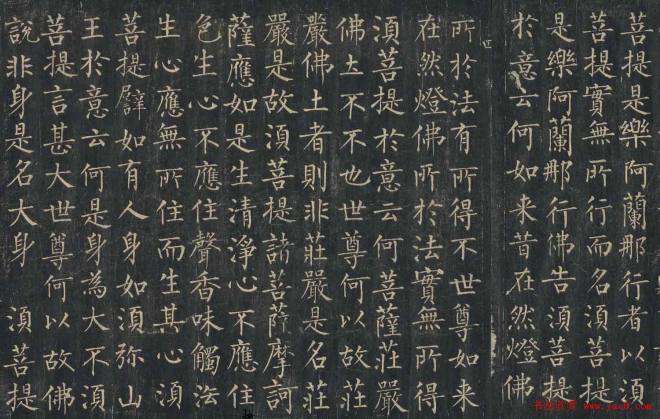 菩提是樂阿蘭那行者以須
菩提實無所行而名須菩提
是樂阿蘭那行佛告須菩提
於意云何如来昔在然燈佛
四
所於法有所得不世尊如来
在然燈佛所於法實無所得
須菩提於意云何菩薩莊嚴
佛土不不也世尊何以故莊
嚴佛土者則非莊嚴是名莊
嚴是故須菩提諸菩薩摩訶
薩應如是生清淨心不應住
色生心不應住聲香味觸法
生心應無所住而生其心須
菩提譬如有人身如須弥山
王於意云何是身為大不須
菩提言甚大世尊何以故佛
說非身是名大身 須菩提
书法欣赏 www.yac8.com